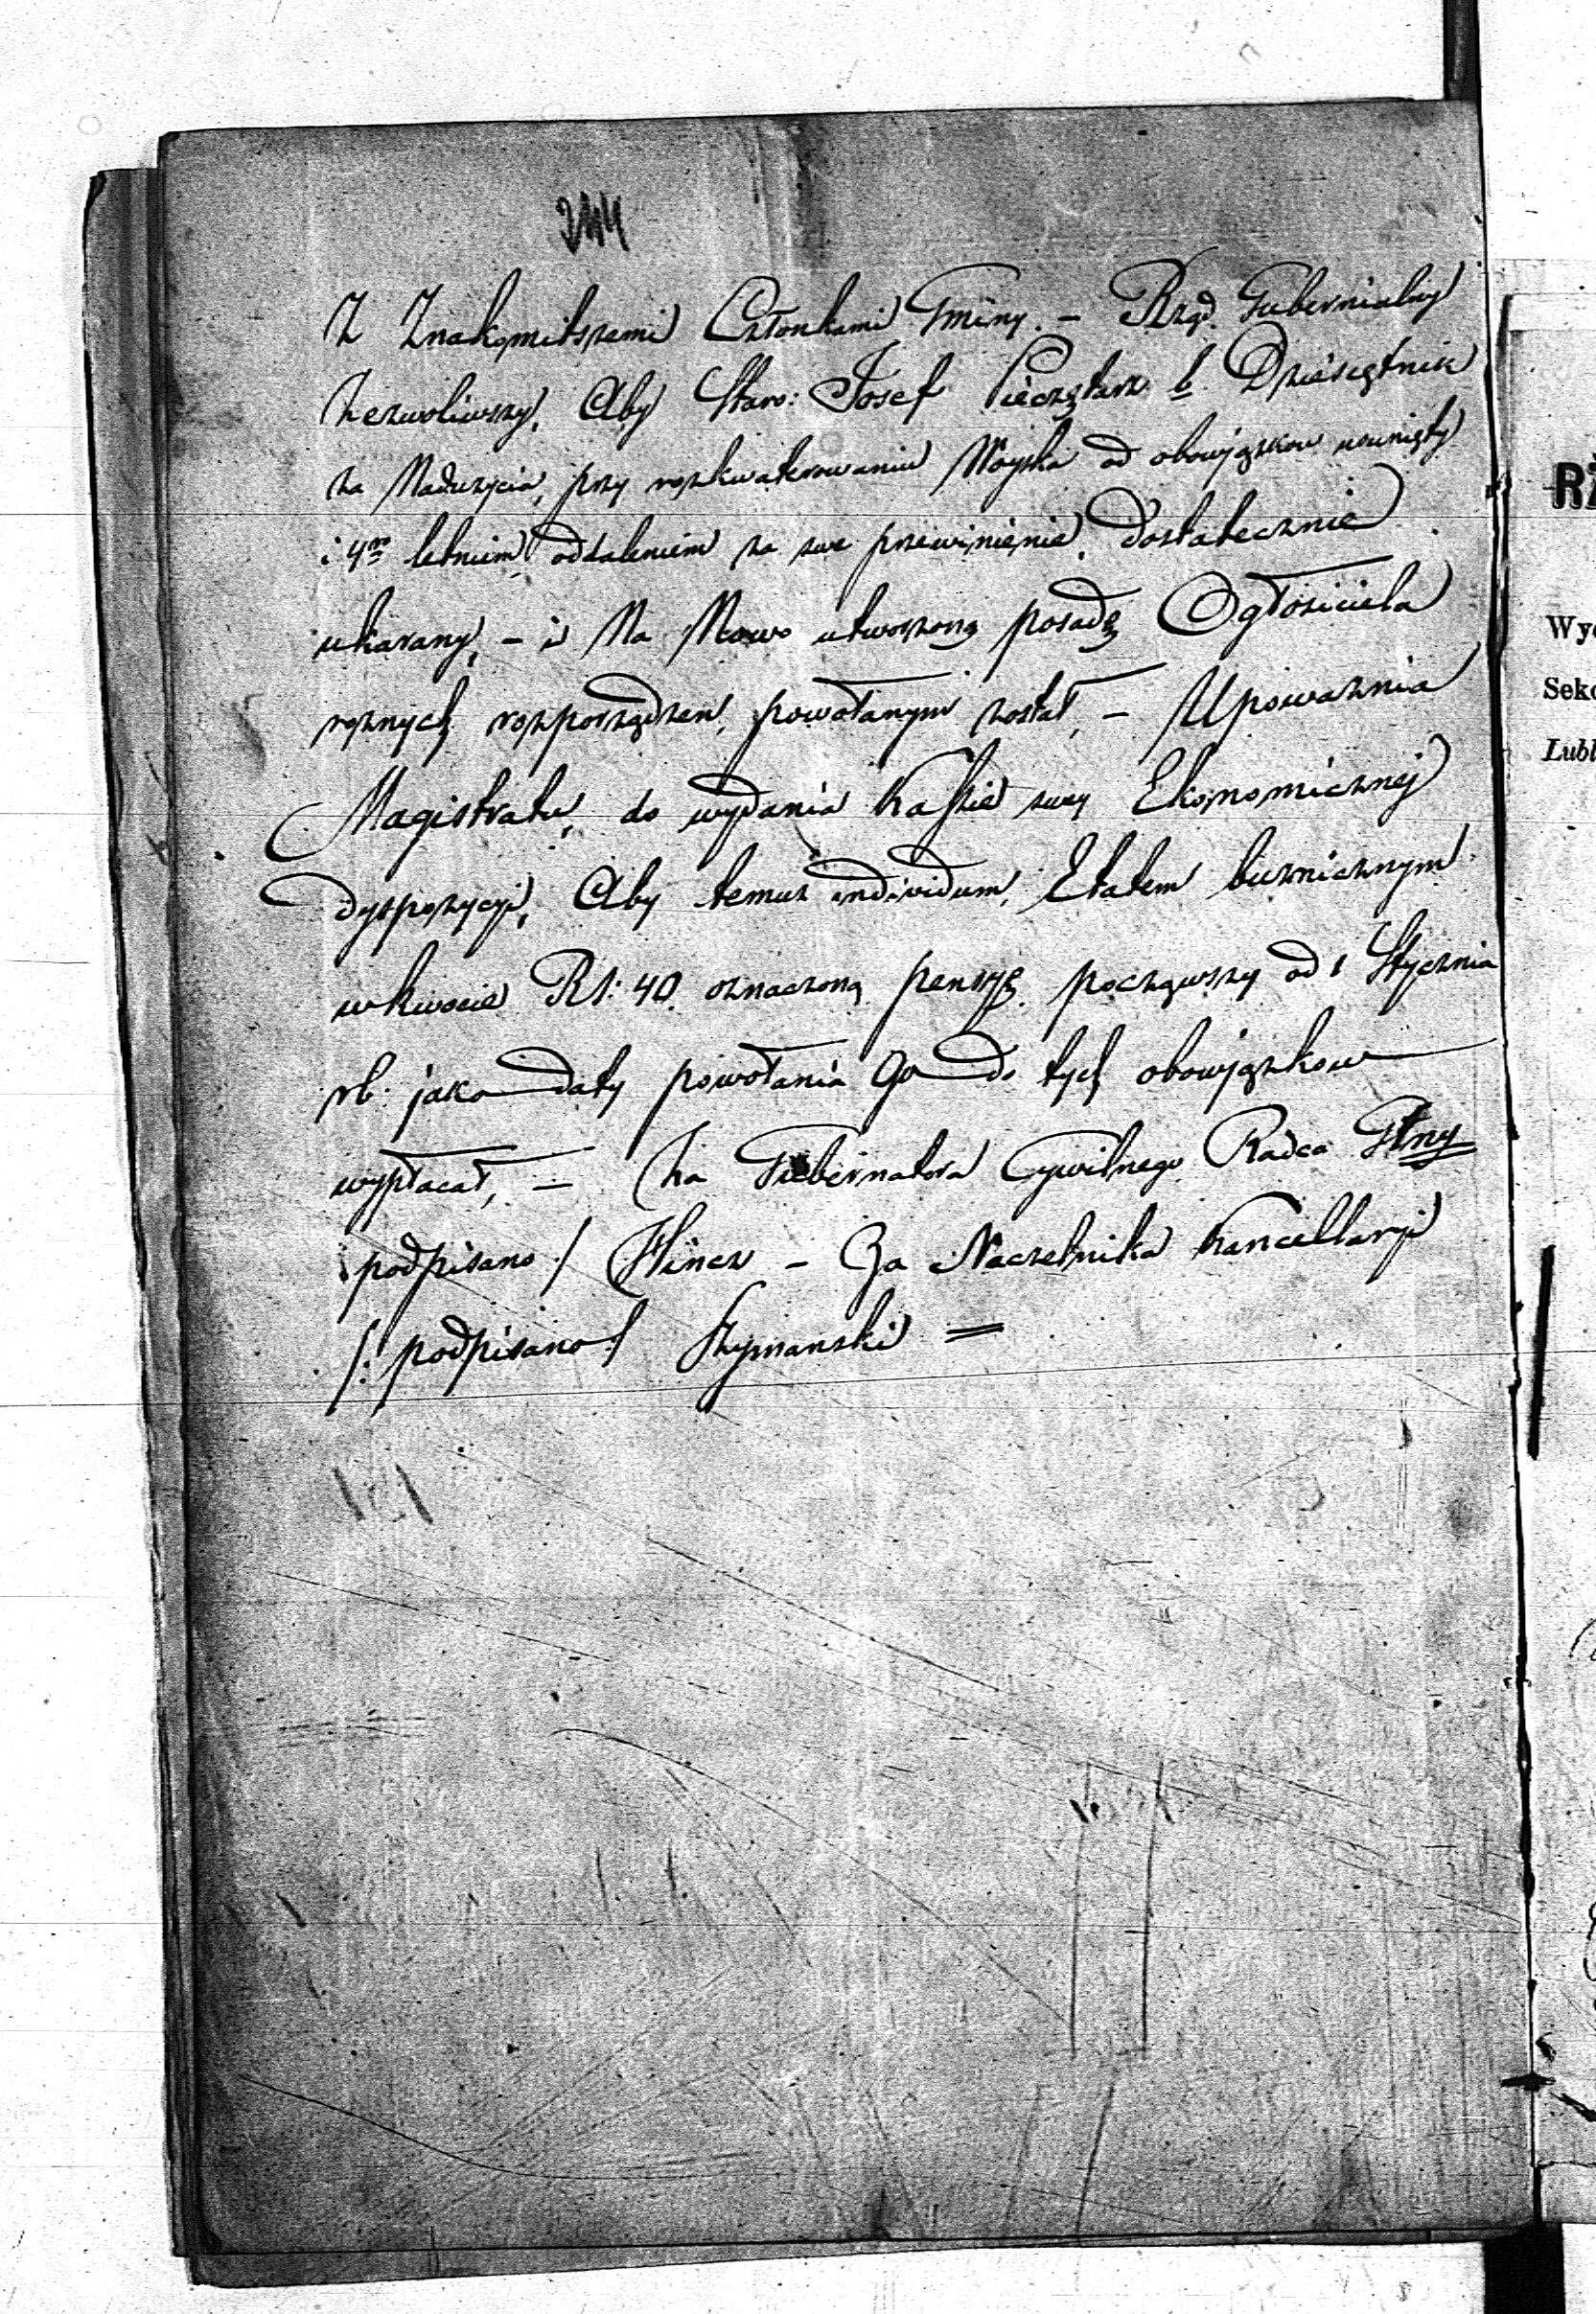 244
Z Znakomitszemi Członkami Gminy. – Rząd Gubernialny
Zezwoliwszy, Aby Staro: Josef Pieczętarz b. Dziesiętnik
za Nadużycia, przy rozkwaterowaniu Woyska od obowjązkow usunięty
i 4ro letniem oddaleniem za swe przewinienie, Dostatecznie
ukarany, – i Na Nowo utworzoną posadę Ogłosiciela
roznych rozporządzen, powołanym został, – Upoważnia
Magistrat, do wydania Kassie swey Ekonomicznej
dyspozycyi, Aby temuz individum, Etatem bużnicznym
w kwocie Rs: 40 oznaczoną pensyę począwszy od 1 Stycznia
rb. jako daty powołania Go do tych obowjązkow
wypłacał, – Za Gubernatora Cywilnego Radca
podpisano / Hincz – Za Naczelnika Kancellaryi
/: podpisano / Szymanski =
RZ
Wy
Sek
Lubl